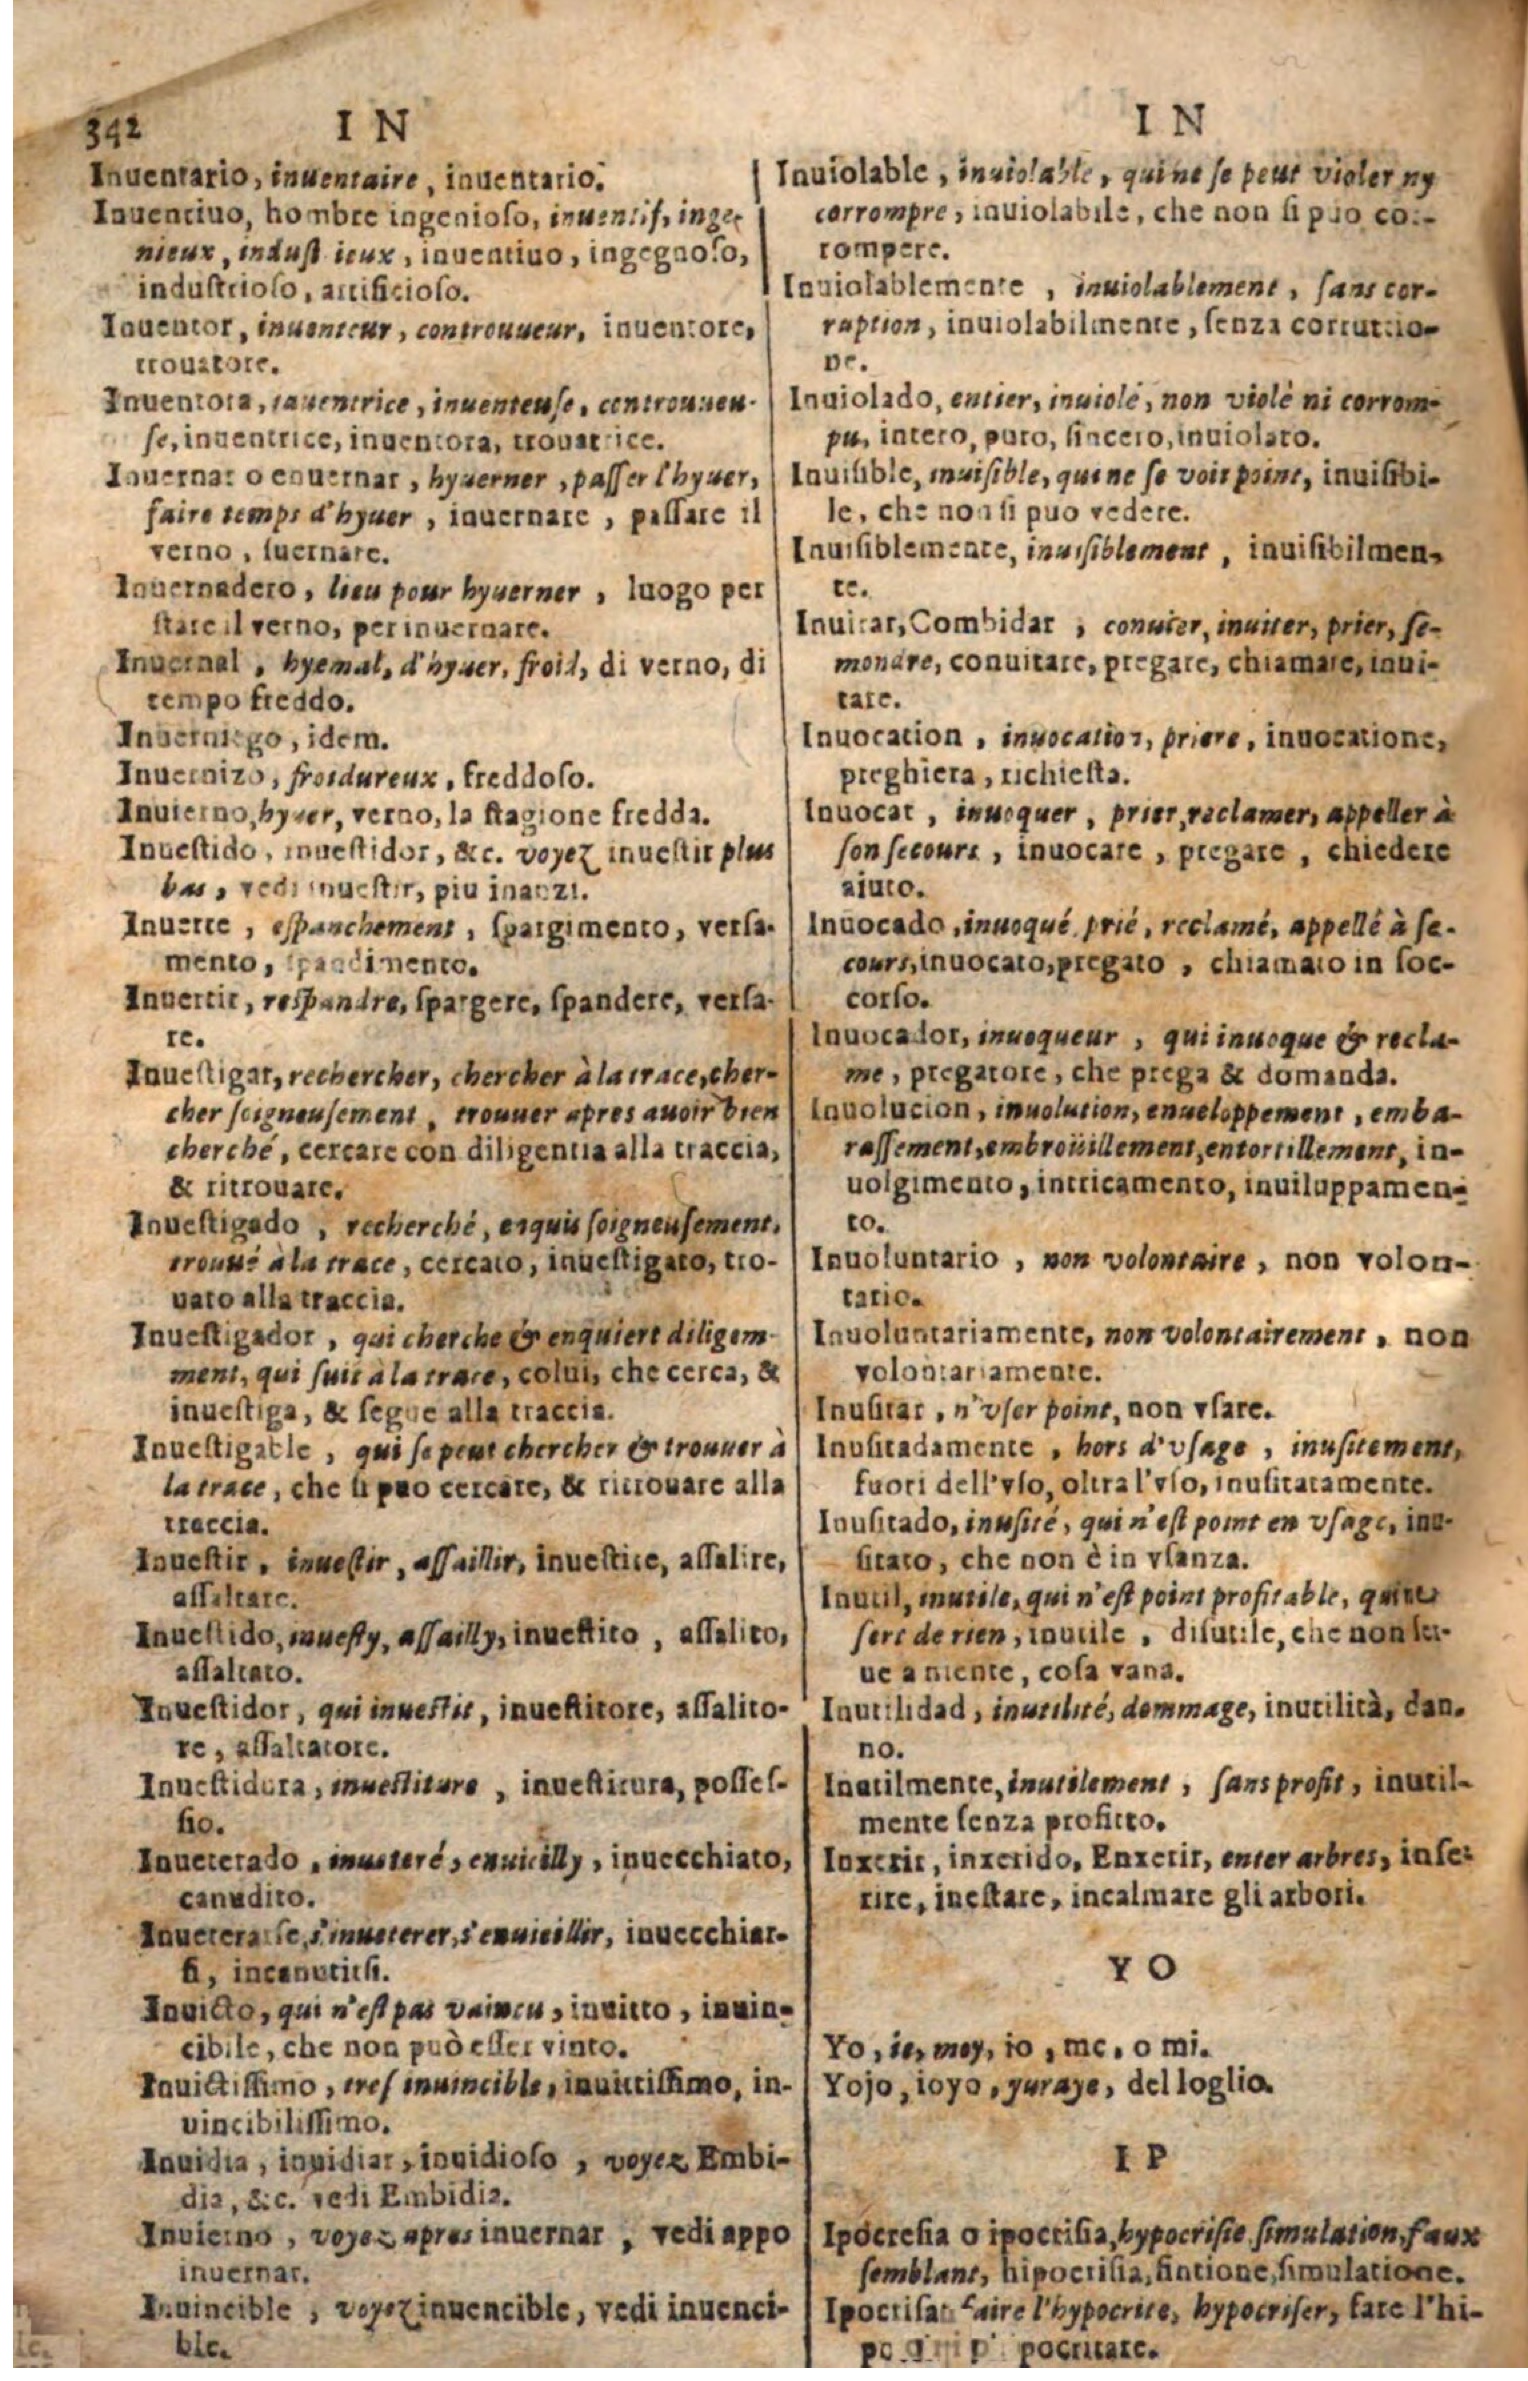 342
IN
Inuentario, inuentaire, inuentario.
Inuentiuo, hombre ingenioso, inuentif, inge-
nieux, indust ieux, inuentiuo, ingegnoso,
industrioso, artificioso.
Inuentor, inuenteur, controuueur, inuentore,
trouatore.
Inuentora, inuentrice, inuenteuse, controuueu-
se, inuentrice, inuentora, trouatrice.
Inuernar o enuernar, hyuerner, passer l'hyuer,
faire temps d'hyuer, inuernare, passare il
verno, suernare.
Inuernadero, lieu pour hyuerner, luogo per
stare il verno, per inuernare.
Inuernal, hyemal, d'hyuer, froid, di verno, di
tempo freddo.
Inuerniego, idem.
Inuernizo, froidureux, freddoso.
Inuierno, hyuer, verno, la stagione fredda.
Inuestido, inuestidor, &c. voyez inuestir plus
bas, vedi inuestir, piu inanzi.
Inuerte, espanchement, spargimento, versa-
mento, spandimento.
Inuertir, respandre, spargere, spandere, versa-
re.
Inuestigar, rechercher, chercher à la trace, cher-
cher soigneusement, trouuer apres auoir bien
cherché, cercare con diligentia alla traccia,
& ritrouare.
Inuestigado, recherché, enquis soigneusement,
trouué à la trace, cercato, inuestigato, tro-
uato alla traccia.
Inuestigador, qui cherche & enquiert diligem-
ment, qui suit à la trace, colui, che cerca, &
inuestiga, & segue alla traccia.
Inuestigable, qui se peut chercher & trouuer à
la trace, che si puo cercare, & ritrouare alla
traccia.
Inuestir, inuestir, assaillir, inuestire, assalire,
assaltare.
Inuestido, inuesty, assailly, inuestito, assalito,
assaltato.
Inuestidor, qui inuestit, inuestitore, assalito-
re, assaltatore.
Inuestidura, inuestiture, inuestitura, posses-
sio.
Inueterado, inueteré, enuieilly, inuecchiato,
canudito.
Inueterarse, s'inueterer, s'enuieillir, inuecchiar-
si, incanutirsi.
Inuicto, qui n'est pas vaincu, inuitto, inuin-
cibile, che non può esser vinto.
Inuictissimo, tres inuincible, inuittissimo, in-
uincibilissimo.
Inuidia, inuidiar, inuidioso, voyez Embi-
dia, &c. vedi Embidia.
Inuierno, voyez apres inuernar, vedi appo
inuernar.
Inuincible, voyez inuencible, vedi inuenci-
ble.
IN
Inuiolable, inuiolable, qui ne se peut violer ny
corrompre, inuiolabile, che non si puo cor-
rompere.
Inuiolablemente, inuiolablement, sans cor-
ruption, inuiolabilmente, senza corruttio-
ne.
Inuiolado, entier, inuiolé, non violé ni corrom-
pu, intero, puro, sincero, inuiolato.
Inuisible, inuisible, qui ne se voit point, inuisibi-
le, che non si puo vedere.
Inuisiblemente, inuisiblement, inuisibilmen-
te.
Inuitar, Combidar, conuier, inuiter, prier, se-
mondre, conuitare, pregare, chiamare, inui-
tare.
Inuocation, inuocation, priere, inuocatione,
preghiera, richiesta.
Inuocar, inuoquer, prier, reclamer, appeller à
son secours, inuocare, pregare, chiedere
aiuto.
Inuocado, inuoqué, prié, reclamé, appellé à se-
cours, inuocato, pregato, chiamato in soc-
corso.
Inuocador, inuoqueur, qui inuoque & recla-
me, pregatore, che prega & domanda.
Inuolucion, inuolution, enueloppement, emba-
rassement, embroüillement, entortillement, in-
uolgimento, intricamento, inuiluppamen-
to.
Inuoluntario, non volontaire, non volon-
tario.
Inuoluntariamente, non volontairement, non
volontariamente.
Inusitar, n'vser point, non vsare.
Inusitadamente, hors d'vsage, inusitement,
fuori dell'vso, oltra l'vso, inusitatamente.
Inusitado, inusité, qui n'est point en vsage, inu-
sitato, che non è in vsanza.
Inutil, inutile, qui n'est point profitable, qui ne
sert de rien, inutile, disutile, che non ser-
ue a niente, cosa vana.
Inutilidad, inutilité, dommage, inutilità, dan-
no.
Inutilmente, inutilement, sans profit, inutil-
mente senza profitto.
Inxerir, inxerido, Enxerir, enter arbres, inse-
rire, inestare, incalmare gli arbori.
YO
Yo, ie, moy, io, me, o mi.
Yojo, ioyo, yuraye, del loglio.
IP
Ipocresia o ipocrisia, hypocrisie, simulation, faux
semblant, hipocrisia, fintione, simulatione.
Ipocrisar faire l'hypocrite, hypocriser, fare l'hi-
pocritare.